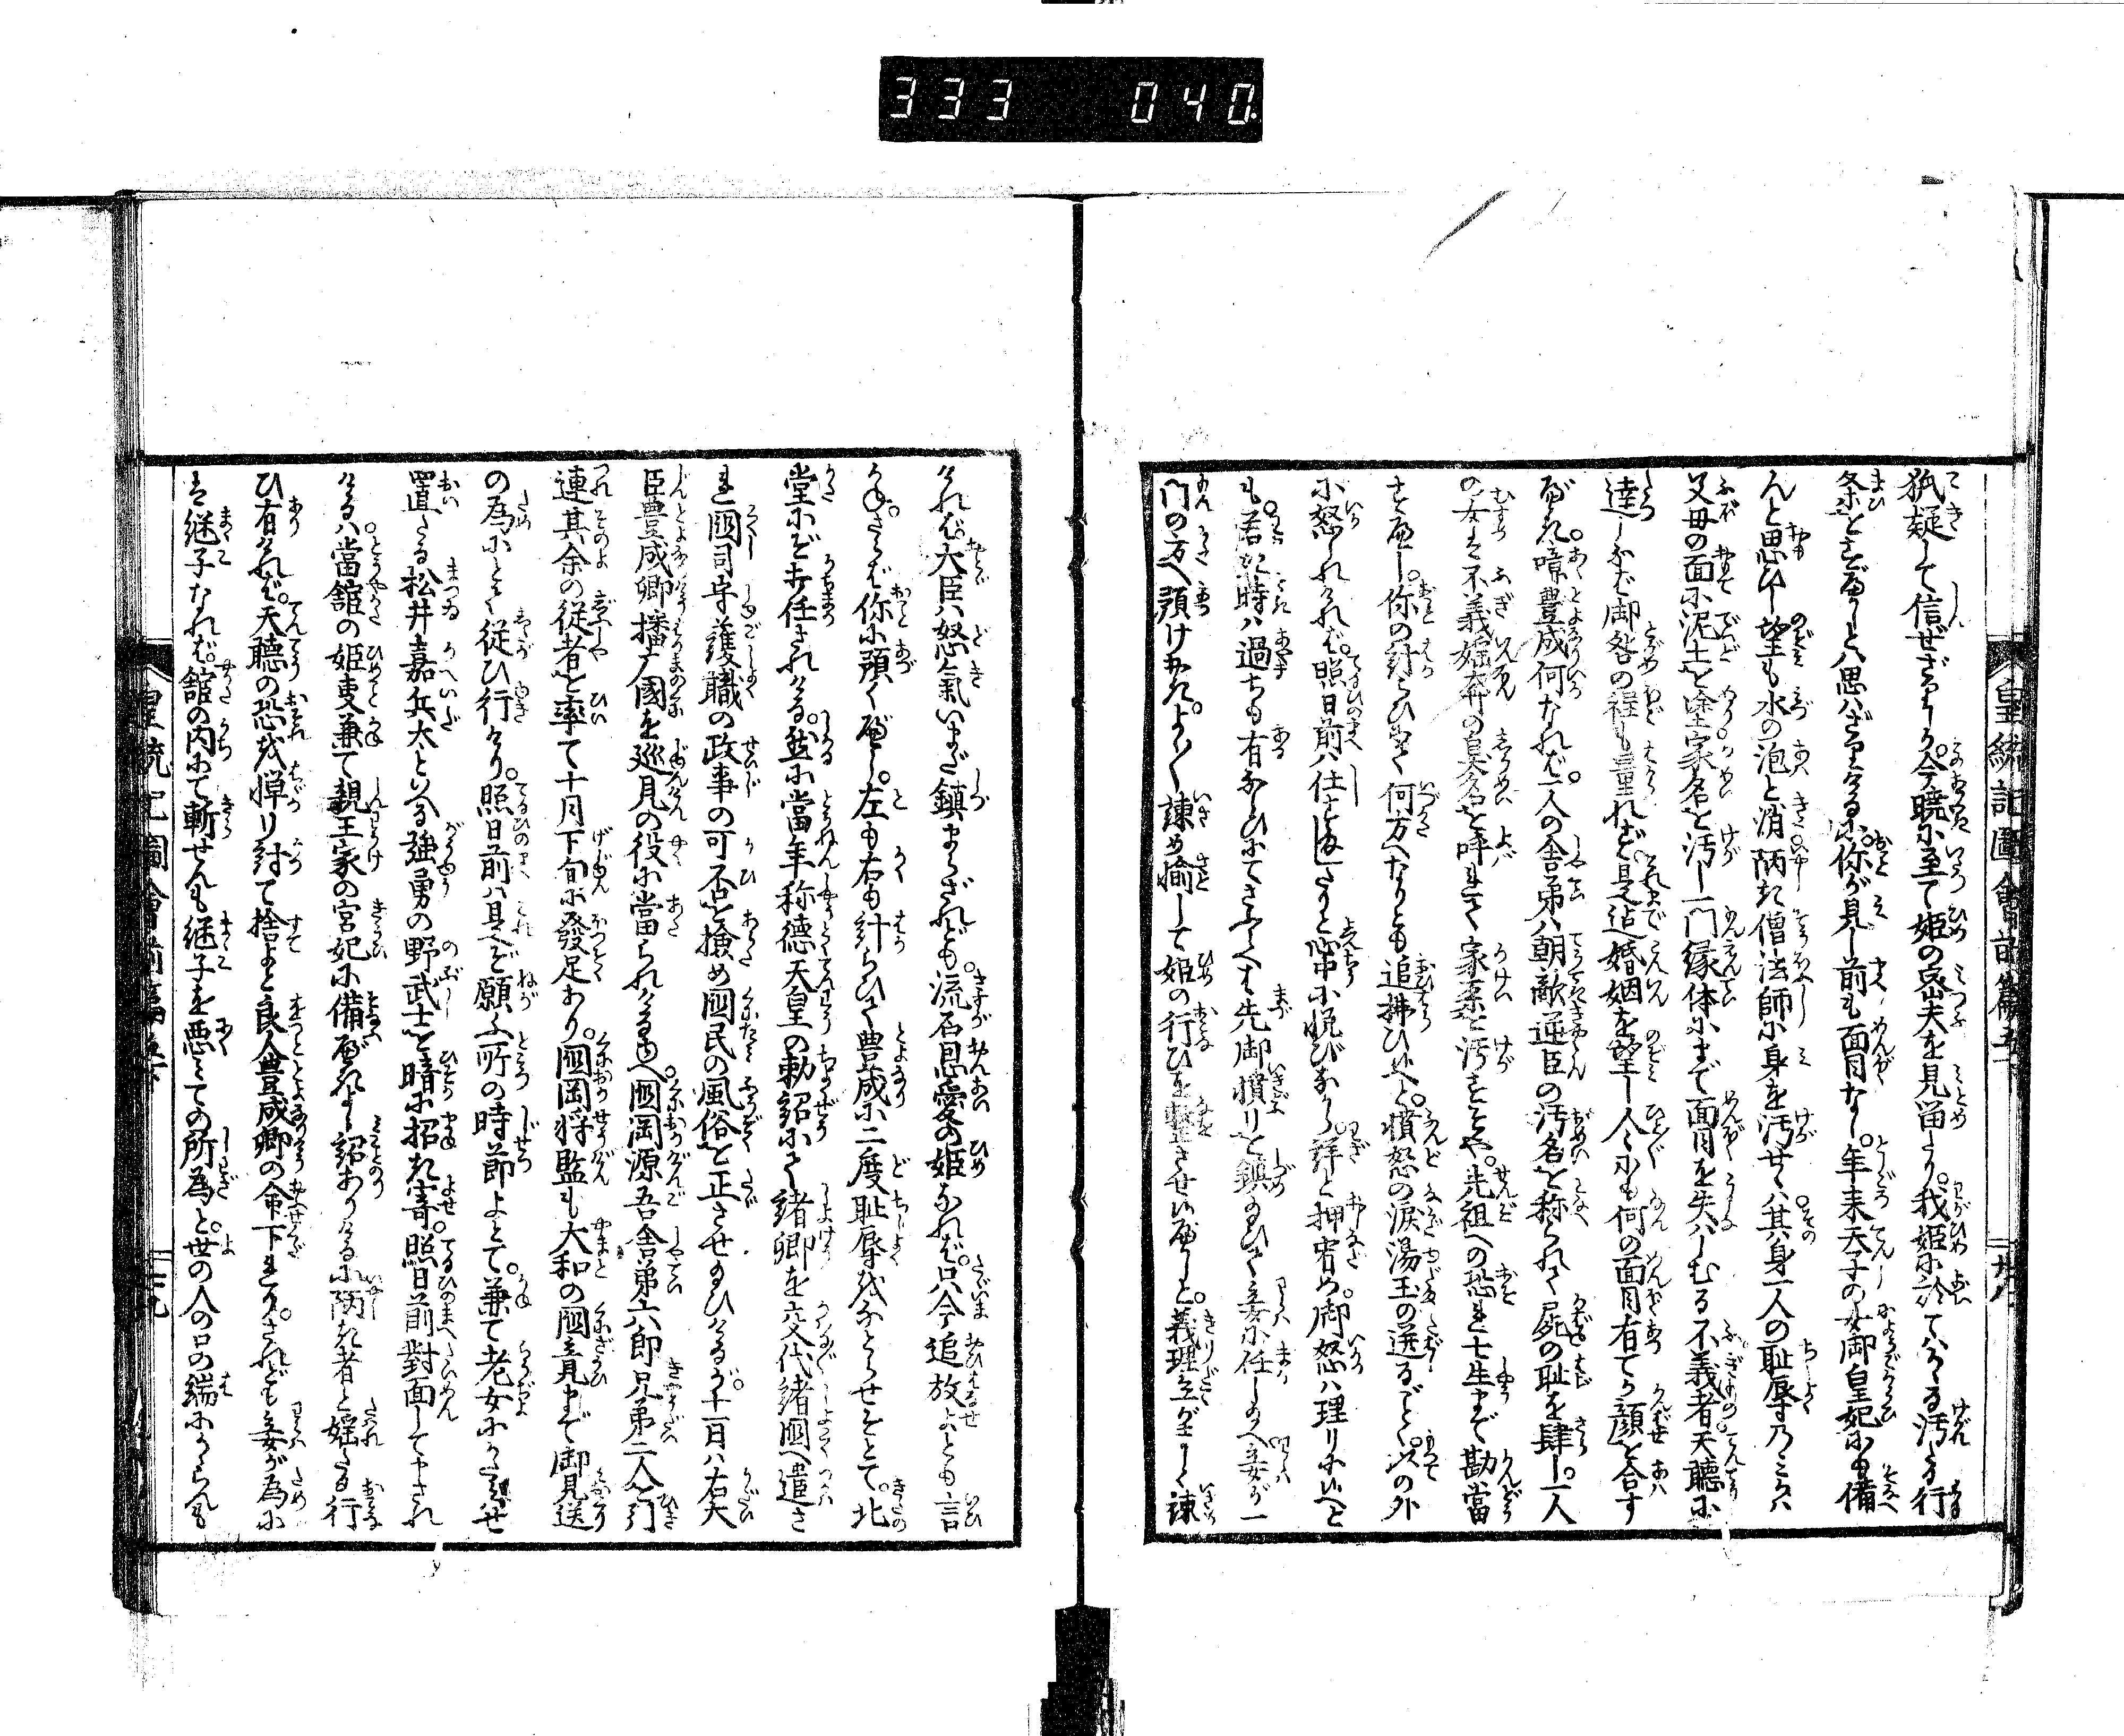 333 040.
皇統記圖會前篇五下
廿八
狐疑して信ぜざりしが。今暁に至て姫の密夫を見留たり。我姫に於てかゝる汚たる行
条をすべしとは思はざりけるに。你が見し前も面目なし。年来天子の女御皇妃にも備
んと思ひし望も水の泡と消陋き僧法師に身を汚せしは。其身一人の恥辱のみならず
父母の面に泥土を塗。家名を汚し一門縁体にまで面目を失はしむる不義者。天聴に
達しなば御咎の程も量れず。是迄婚姻を望し人々にも何の面目有てか顔を合す
べき。噫豊成何なれば。一人の舎弟は朝敵逆臣の汚名を称られて屍の恥を肆し。一人
の女は不義婬奔の臭名を呼れて家系を汚すぞや。先祖への恐れ七生まで勘當
すべし。你の計らひにて何方へなりとも追拂ひ候へと。憤怒の涙湯玉の迸るごとく。以の外
に怒られければ。照日前は仕すましたりと心中に悦びながら。詳と押宥め。御怒は理りに候へど
も。若き時は過ちも有ならひにてさふらへば。先御憤りを鎮給ひて妾に任し給へ。妾が一
門の方へ預け候はん。よく〱諫め愉して姫の行ひを整させ候べしと。義理立がましく諫
ければ。大臣は怒氣いまだ鎮まらざれども。流石恩愛の姫なれば。只今追放よとも言
かね。さらば你に預くべし。左も右も計らひて豊成に二度恥辱なとらせそとて。北
堂にぞ打任されける。然に當年称徳天皇の勅詔にて諸卿を交代諸國へ遣さ
れ國司守護職の政事の可否を撿め國民の風俗を正させ給ひけるが。十一月は右大
臣豊成卿播广國を巡見の役に當られける由へ。國岡源吾舎弟六郎兄弟二人引
連其余の従者を率て十月下旬に發足あり。國岡将監も大和の國竟まで御見送
の為にとて従ひ行けり。照日前は是ぞ願ふ所の時節よとて。兼て老女にかたらはせ
置たる松井嘉兵太といへる強勇の野武士を暗に招き寄。照日前對面して申され
けるは。當舘の姫吏兼て親王家の宮妃に備べきよし詔ありけるに陋き者と婬たる行
ひ有ければ。天聴の恐を憚り討て捨よと良人豊成卿の命下れり。されども妾が為に
は継子なれば。舘の内にて斬せんも継子を悪みての所為と。世の人の口の端にかゝらんも
皇統記圖會前篇五下
廿九